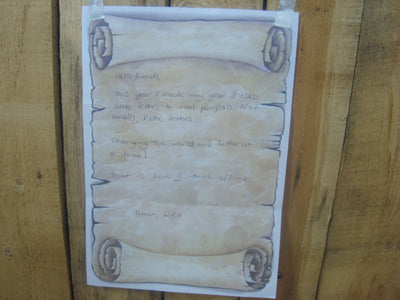 Hello friends,
This year I made my year 8 class
write letters to real penpals. Not
emails, letters.
Changing the world one letter at
a time!
That is how I think offline
From,